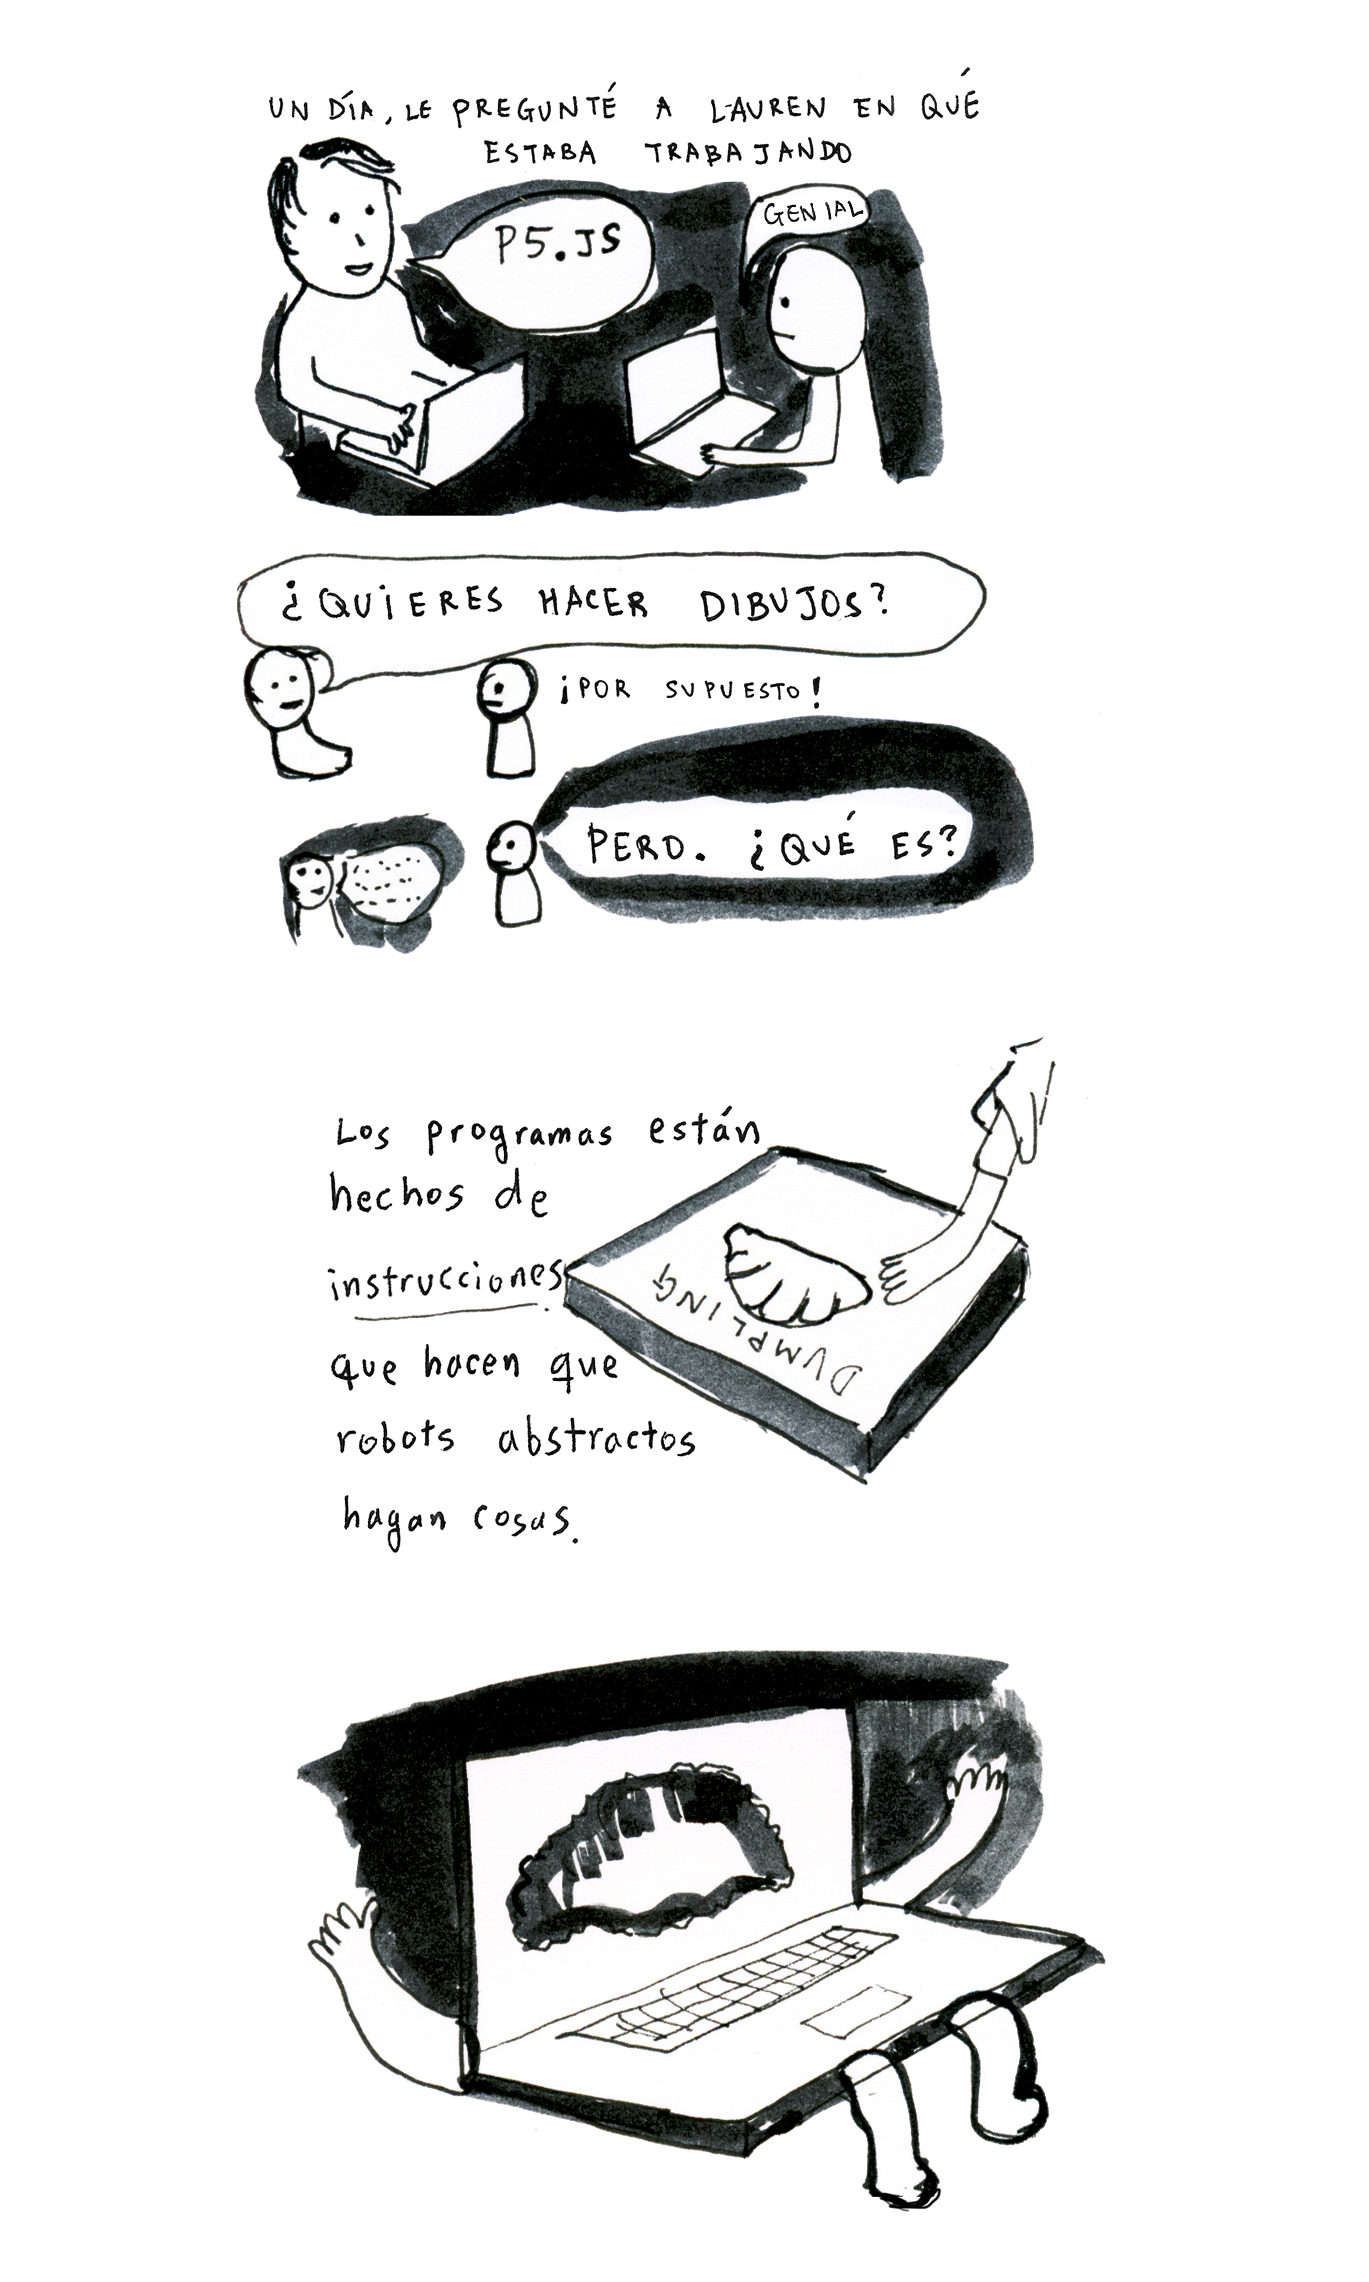 UN DÍA, LE PREGUNTÉ A LAUREN EN QUÉ
ESTABA TRABAJANDO
P5.JS
GENIAL
¿QUIERES HACER DIBUJOS?
¡POR SUPUESTO!
PERO. ¿QUÉ ES?
Los programas están
hechos de
instrucciones
que hacen que
robots abstractos
hagan cosas.
DUMPLING